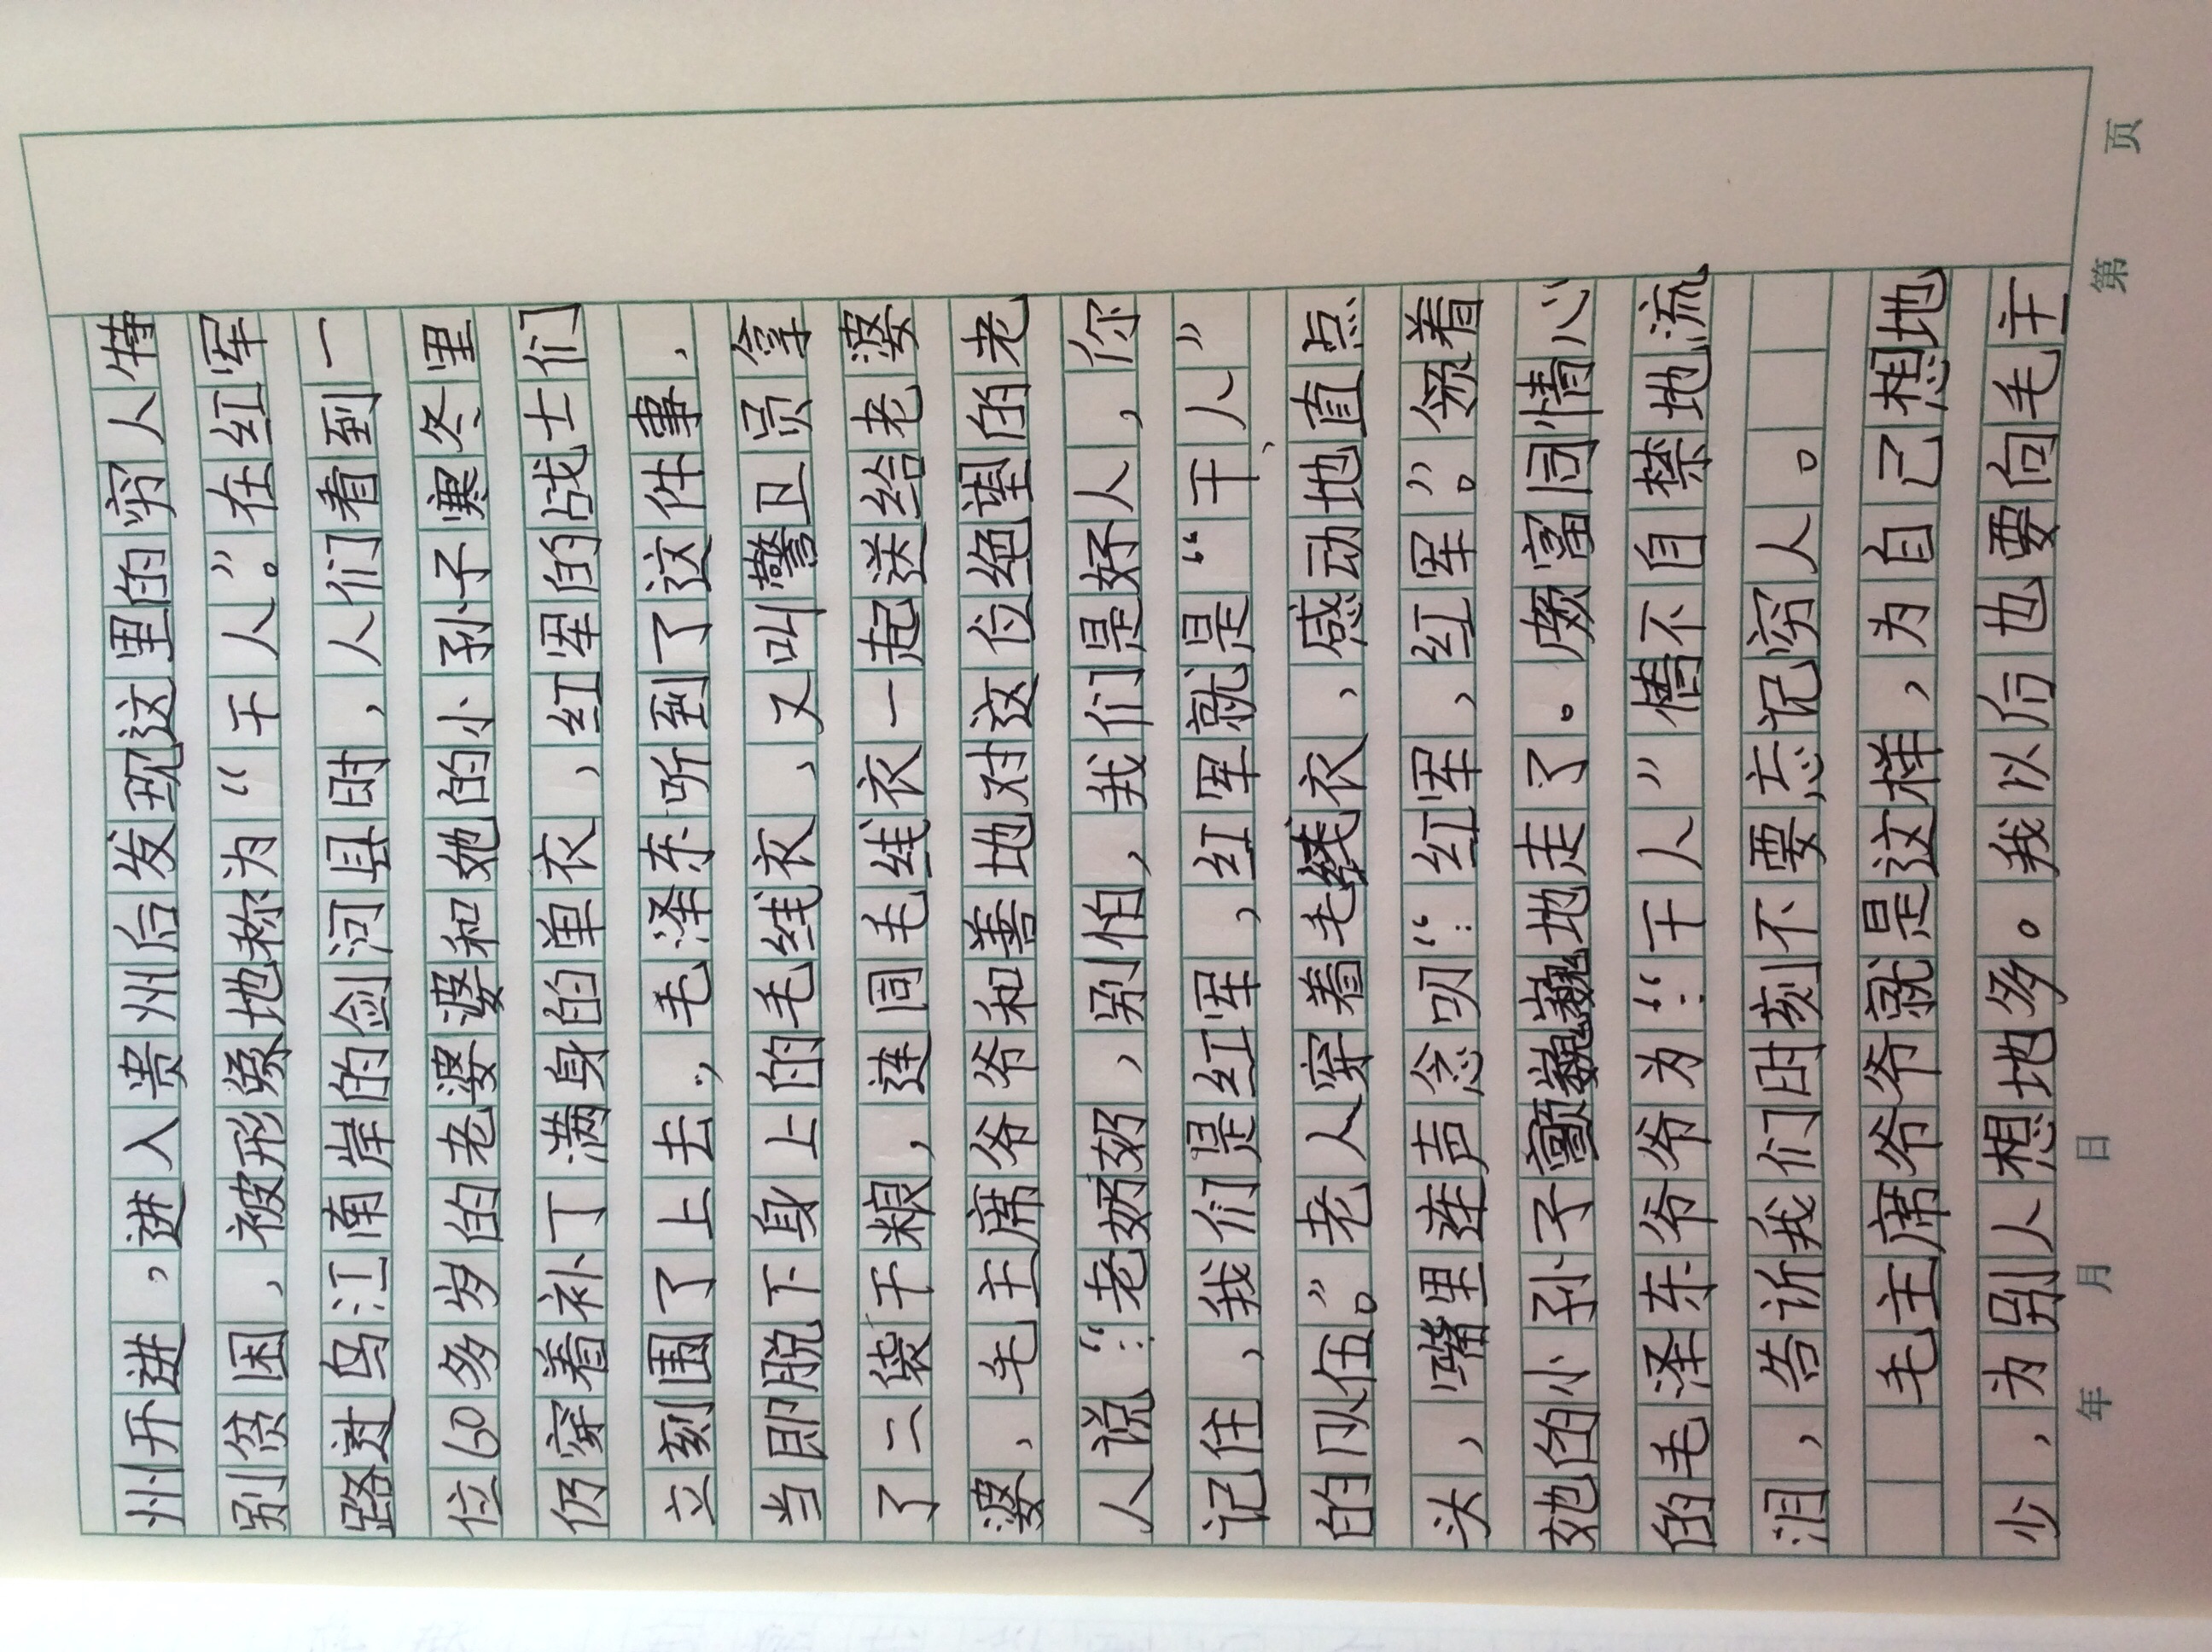 州开进，进入贵州后发现这里的穷人特
别贫困，被形象地称为“干人”。在红军
路过乌江南岸的剑河县时，人们看到一
位60多岁的老婆婆和她的小孙子寒冬里
仍穿着补丁满身的单衣，红军的战士们
立刻围了上去。，毛泽东听到了这件事，
当即脱下身上的毛线衣，又叫警卫员拿
了二袋干粮，连同毛线衣一起送给老婆
婆、毛主席爷爷和善地对这位绝望的老
人说：“老奶奶，别怕，我们是好人，你
记住，我们是红军，红军就是“干人”
的队伍。”老人穿着毛线衣，感动地直点
头，嘴里连声念叨：“红军，红军”。领着
她的小孙子颤巍巍地走了。颇富同情心
的毛泽东爷爷为：“干人”情不自禁地流
泪，告诉我们时刻不要忘记穷人。
毛主席爷爷就是这样，为自己想地
少，为别人想地多。我以后也要向毛主
年 月 日 第 页